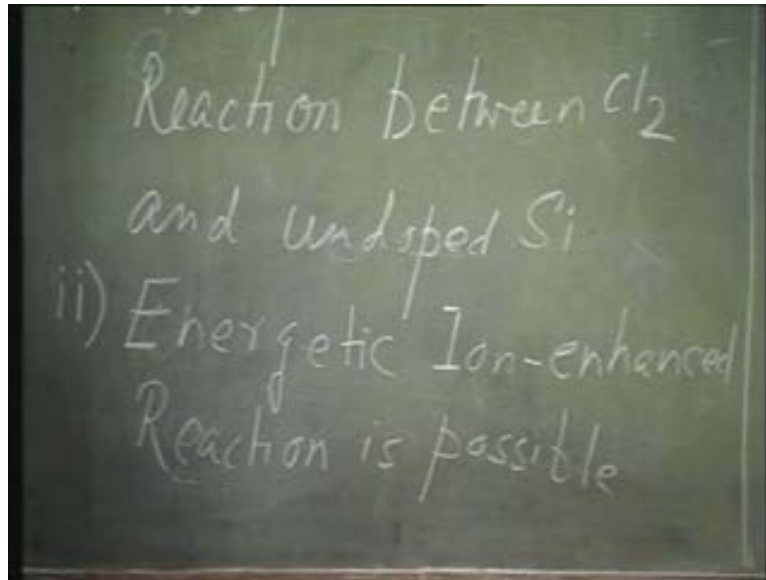 Reaction between Cl2
and undoped Si
ii) Energetic Ion-enhanced
Reaction is possible